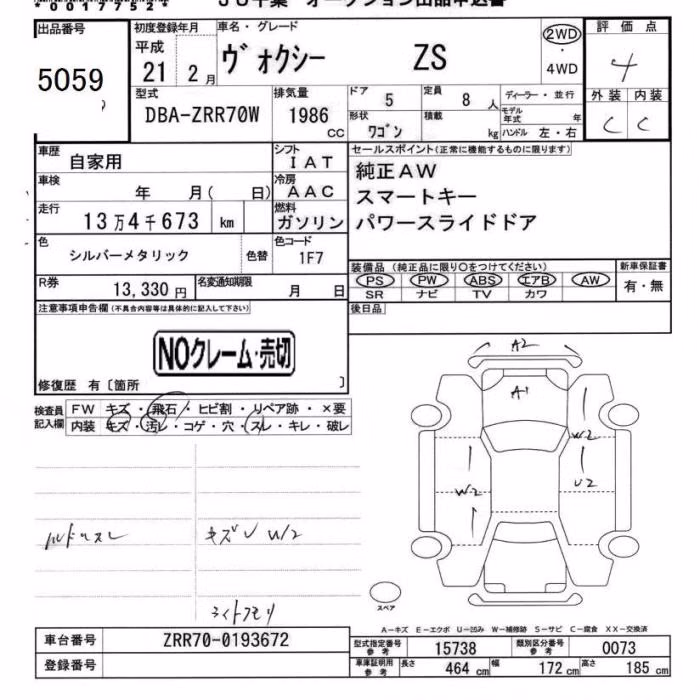 *00177524*
JU千葉 オークション出品申込書
出品番号
5059
初度登録年月
平成
21 2月
車名・グレード
ヴォクシー ZS
2WD
・
4WD
評価点
4
外装 内装
C C
型式
DBA-ZRR70W
排気量
1986
CC
ドア 5
定員 8 人
形状 ワゴン
積載 kg
ディーラー・並行
モデル年式 年
ハンドル 左・右
車歴
自家用
シフト
IAT
車検
年 月( 日)
冷房
AAC
走行
13万4千673 km
燃料
ガソリン
色
シルバーメタリック
色替
色コード
1F7
R券
13,330 円
名変通知期限
月 日
セールスポイント(正常に機能するものに限ります)
純正AW
スマートキー
パワースライドドア
装備品(純正品に限り○をつけてください)
PS PW ABS エアB AW
SR ナビ TV カワ
新車保証書
有・無
後日品
注意事項申告欄(不具合内容等は具体的に記入して下さい)
NOクレーム・売切
修復歴 有〔箇所 〕
検査員
記入欄
FW キズ・飛石・ヒビ割・リペア跡・×要
内装 キズ・汚レ・コゲ・穴・スレ・キレ・破レ
A2
A1
W2
W2
U2
ハンドルスレ
キズ W2
ライトクモリ
スペア
A-キズ E-エクボ U-凹み W-補修跡 S-サビ C-腐食 XX-交換済
車台番号
ZRR70-0193672
登録番号
型式指定番号
参考
15738
類別区分番号
参考
0073
車庫証明用
参考
長さ 464 cm
幅 172 cm
高さ 185 cm